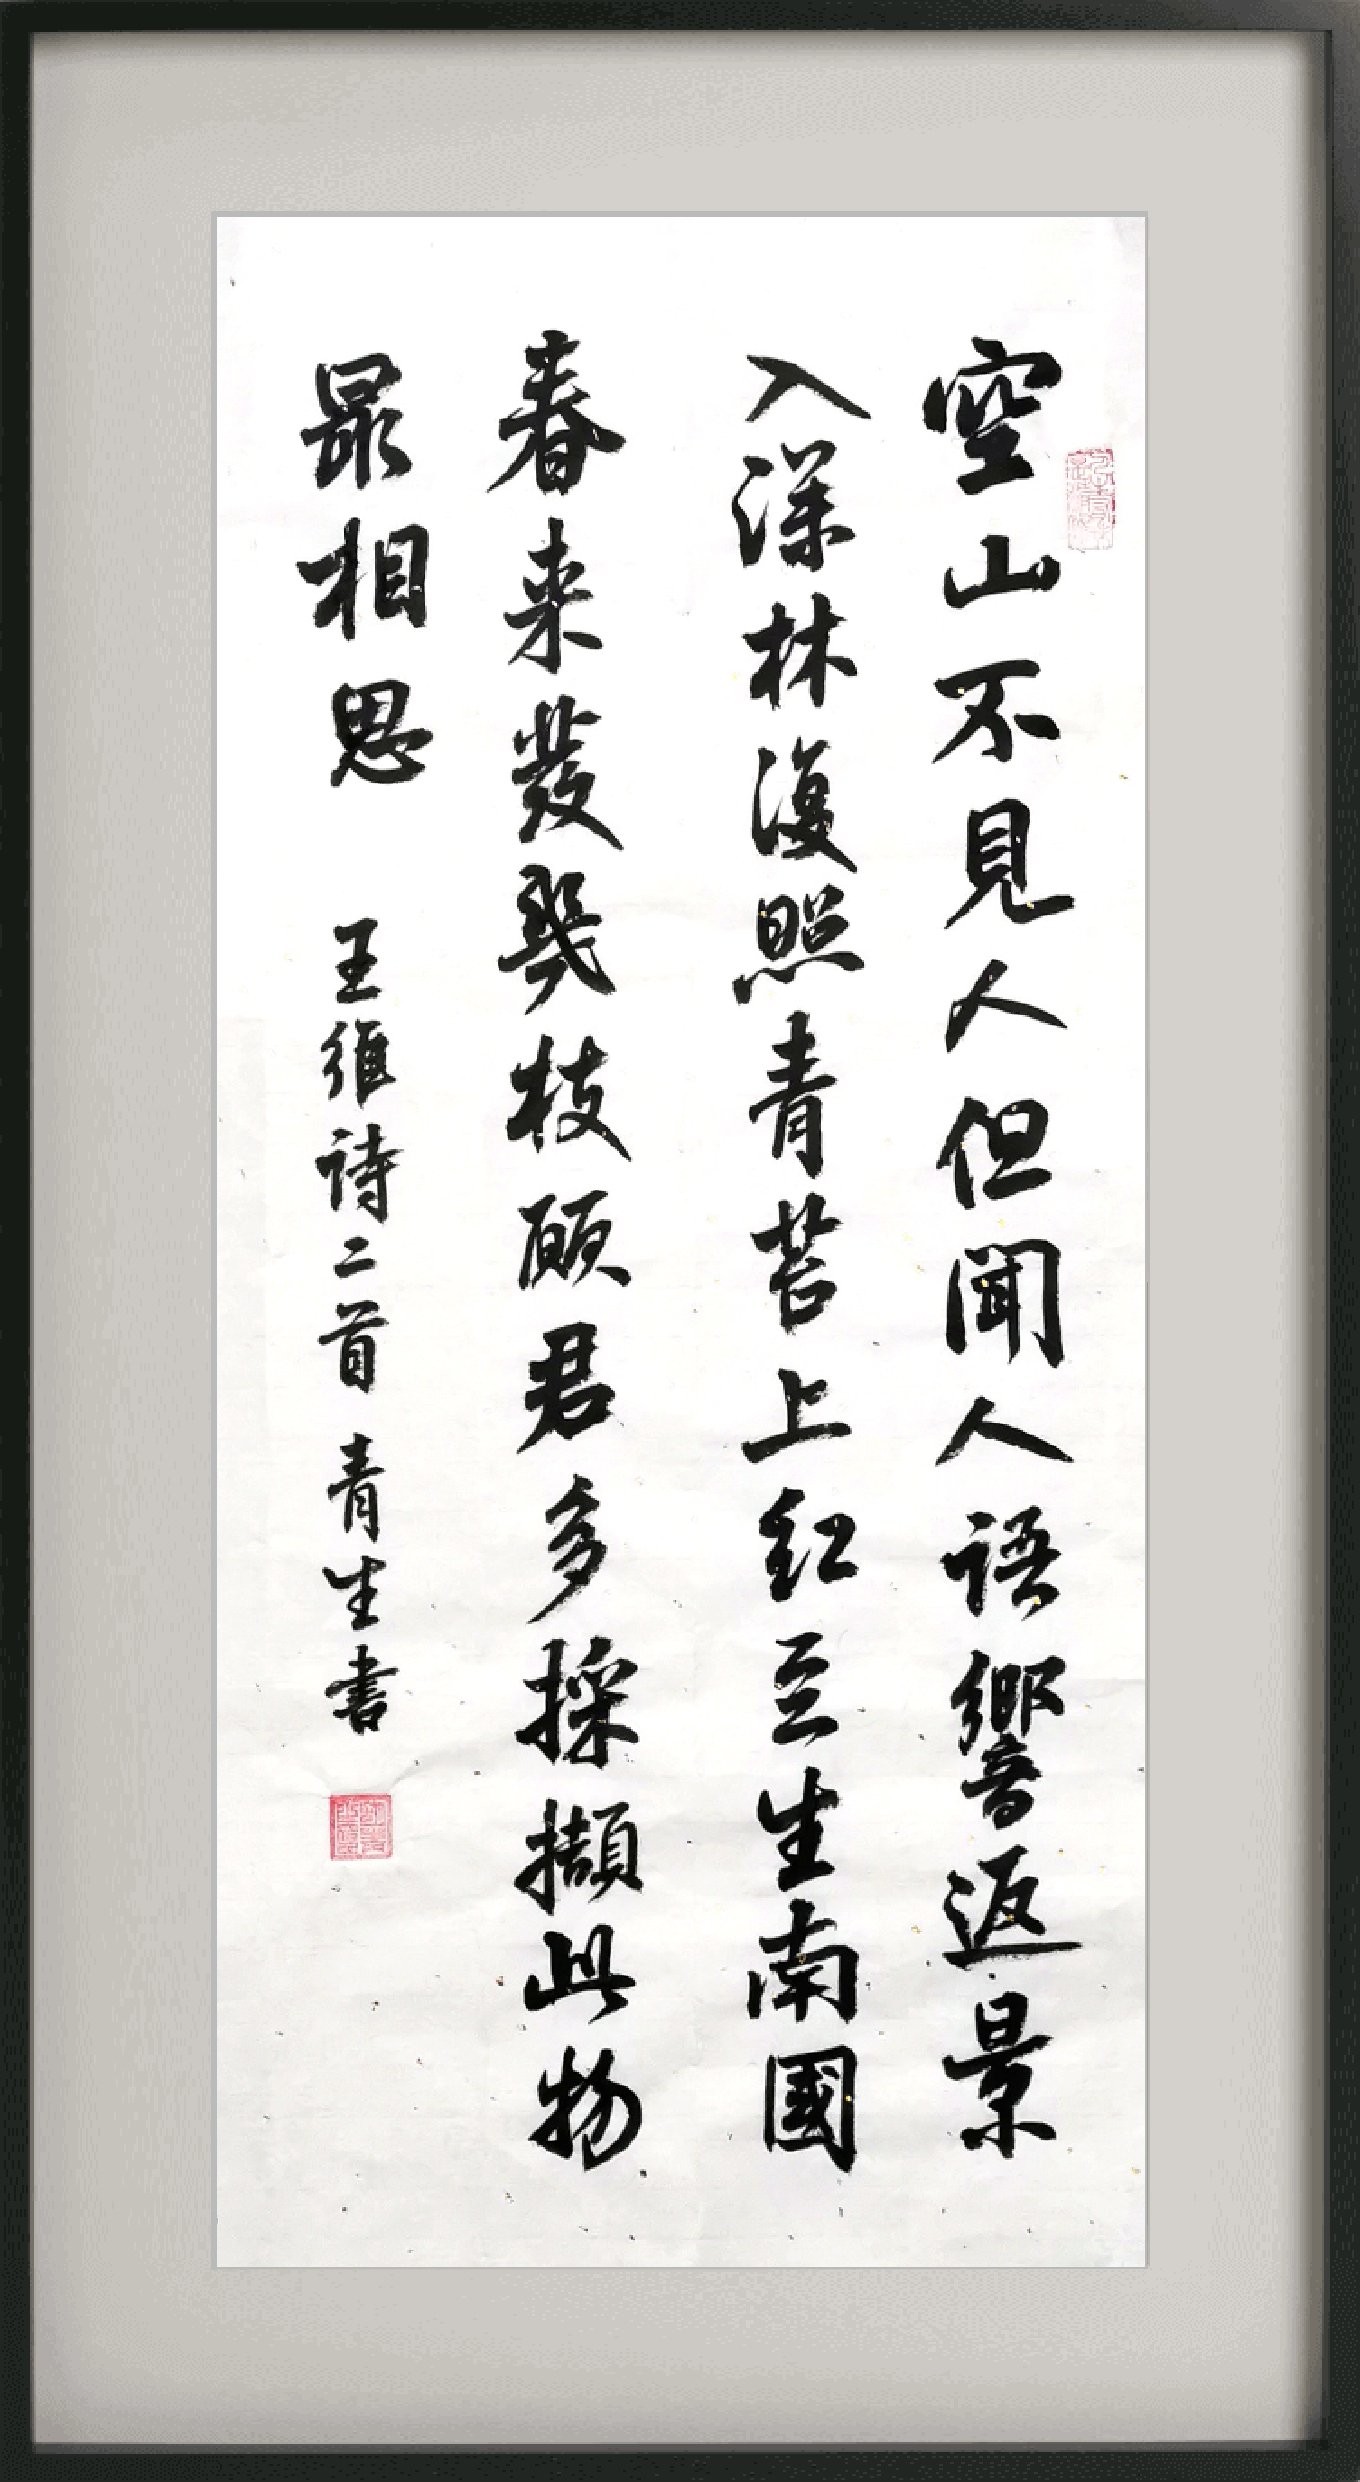 空山不見人但聞人語響返景
入深林復照青苔上紅豆生南國
春来發幾枝願君多採擷此物
最相思 王維詩二首 青生書